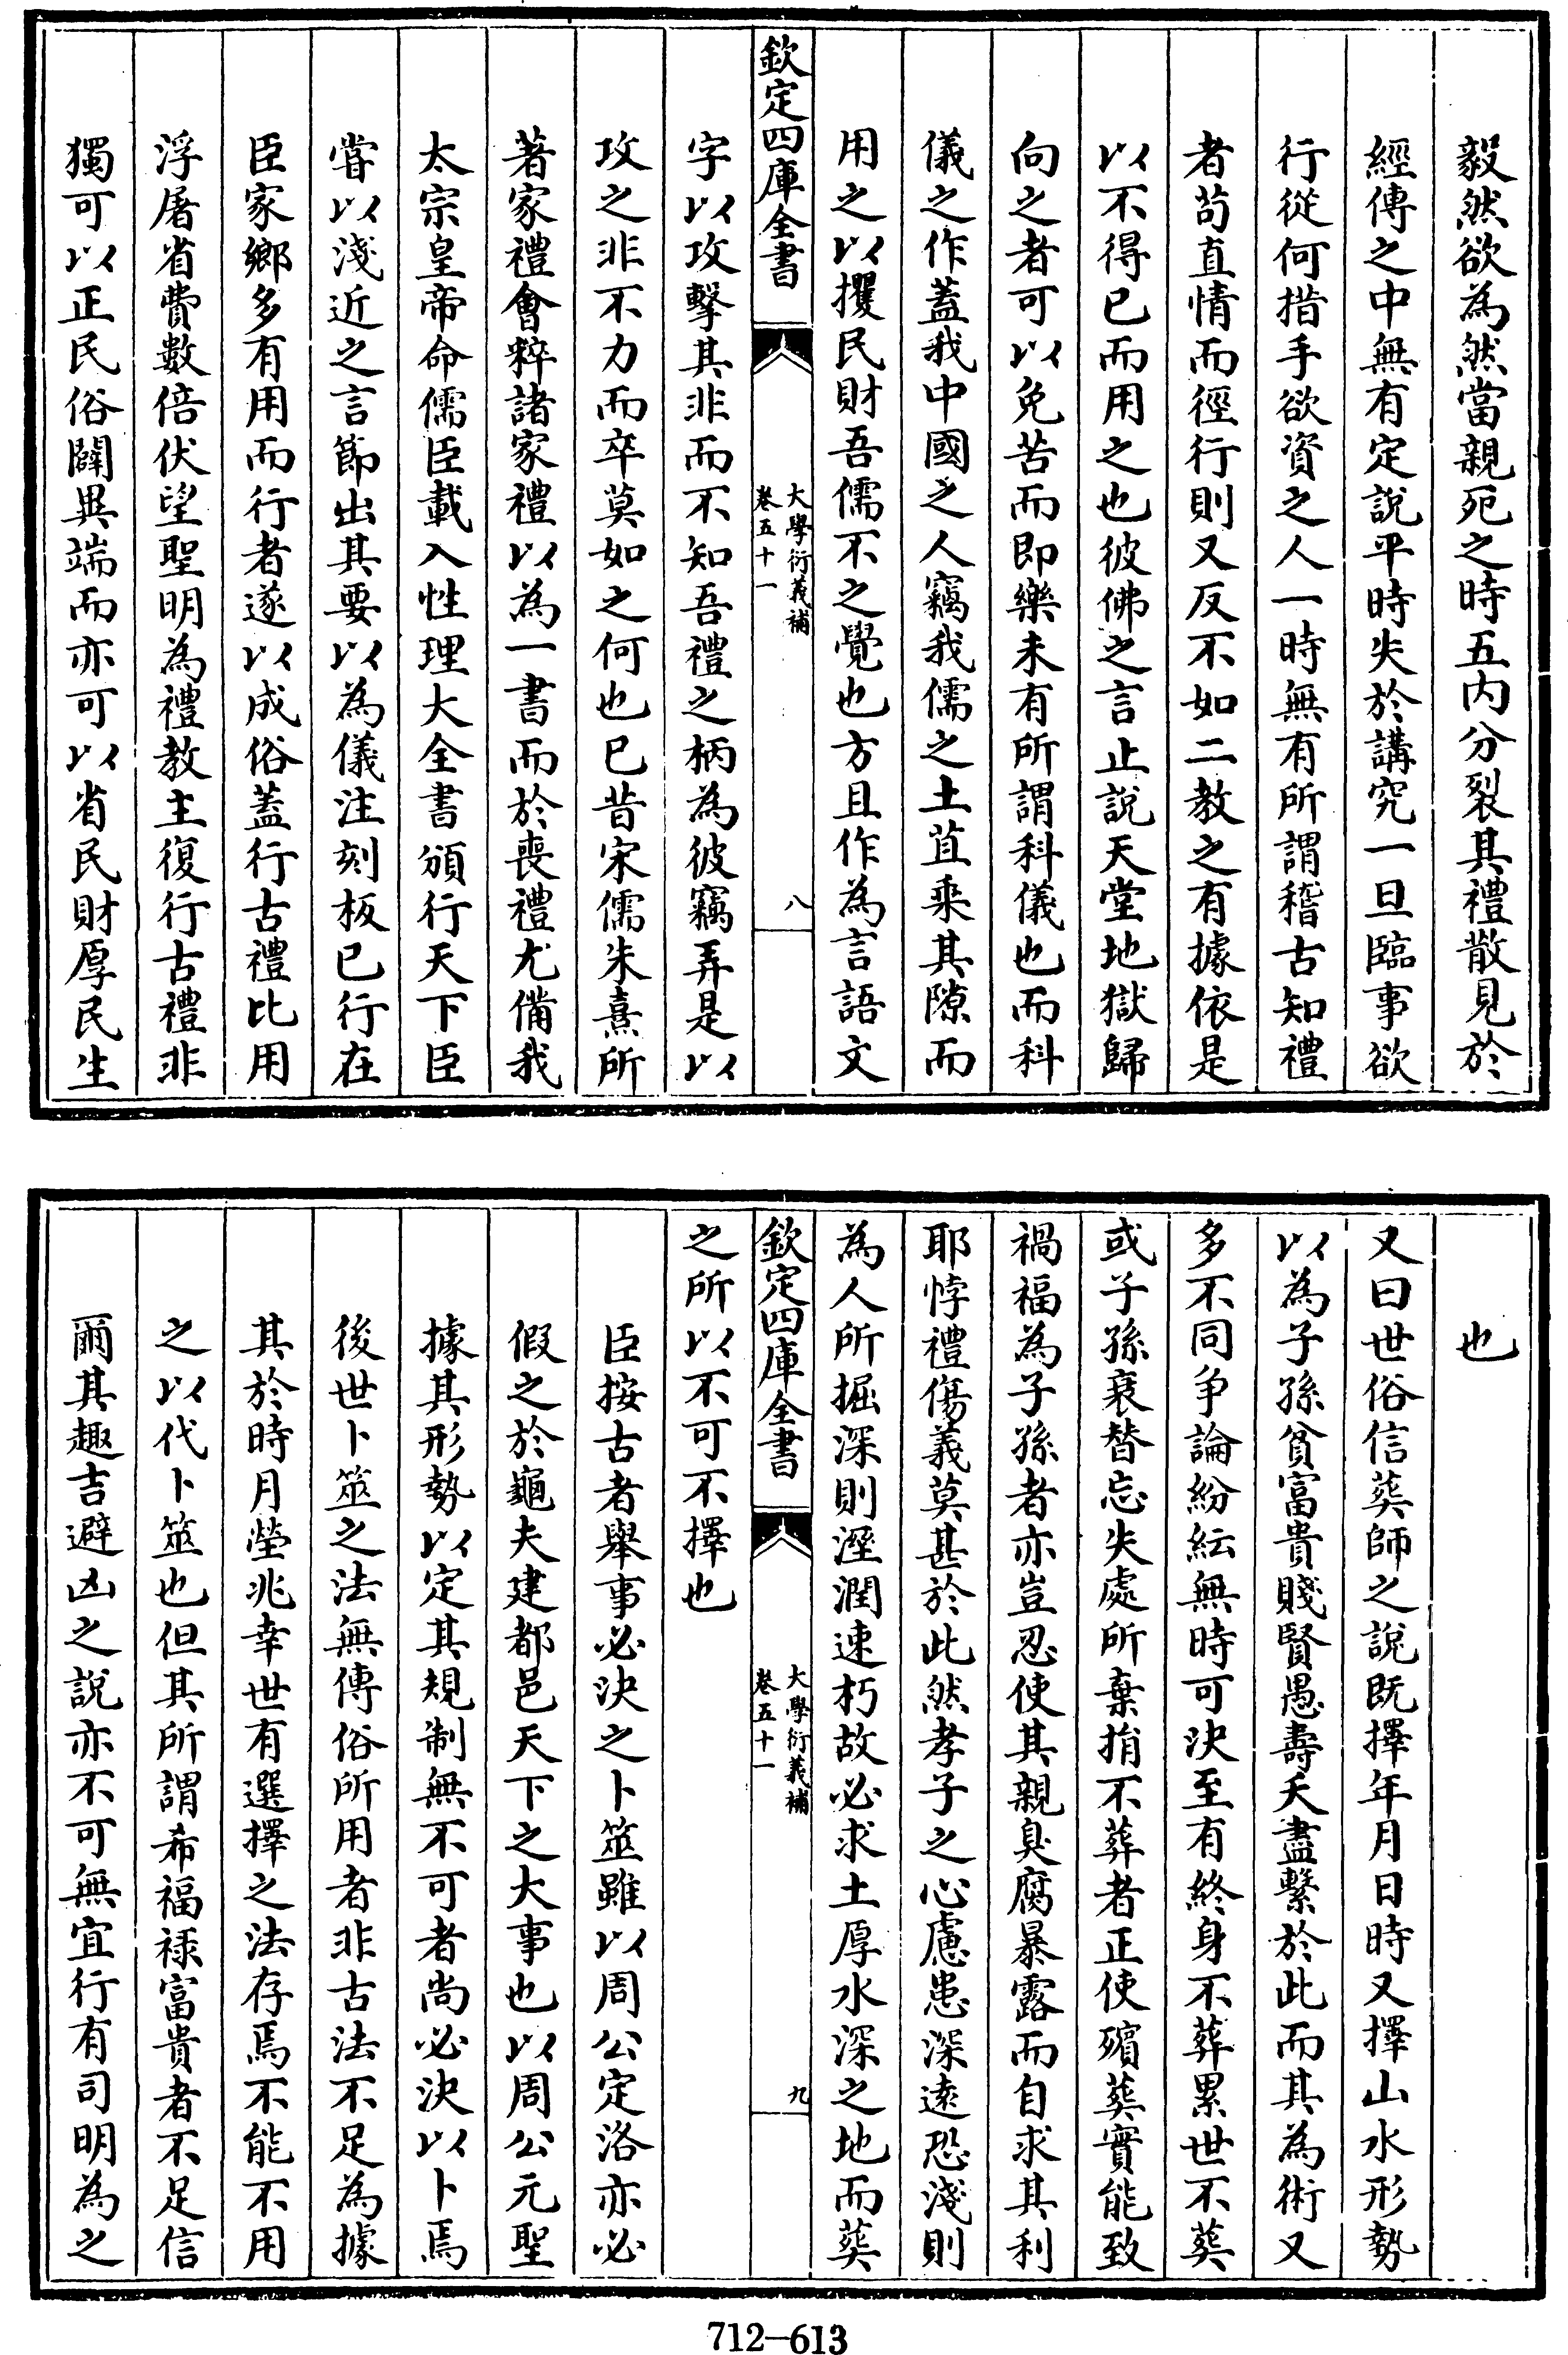 毅然欲為然當親死之時五内分裂其禮散見於
經傳之中無有定說平時失於講究一旦臨事欲
行從何措手欲資之人一時無有所謂稽古知禮
者茍直情而徑行則又反不如二教之有據依是
以不得已而用之也彼佛之言止說天堂地獄歸
向之者可以免苦而即樂未有所謂科儀也而科
儀之作蓋我中國之人竊我儒之土苴乘其隙而
用之以攫民財吾儒不之覺也方且作為言語文
欽定四庫全書
大學衍義補
卷五十一
八
字以攻擊其非而不知吾禮之柄為彼竊弄是以
攻之非不力而卒莫如之何也已昔宋儒朱熹所
著家禮會粹諸家禮以為一書而於喪禮尤備我
太宗皇帝命儒臣載入性理大全書頒行天下臣
嘗以淺近之言節出其要以為儀注刻板已行在
臣家鄉多有用而行者遂以成俗蓋行古禮比用
浮屠省費數倍伏望聖明為禮教主復行古禮非
獨可以正民俗闢異端而亦可以省民財厚民生
也
又曰世俗信葬師之說既擇年月日時又擇山水形勢
以為子孫貧富貴賤賢愚壽夭盡繫於此而其為術又
多不同爭論紛紜無時可決至有終身不葬累世不葬
或子孫衰替忘失處所棄捐不葬者正使殯葬實能致
禍福為子孫者亦豈忍使其親臭腐暴露而自求其利
耶悖禮傷義莫甚於此然孝子之心慮患深遠恐淺則
為人所掘深則溼潤速朽故必求土厚水深之地而葬
欽定四庫全書
大學衍義補
卷五十一
九
之所以不可不擇也
臣按古者舉事必決之卜筮雖以周公定洛亦必
假之於龜夫建都邑天下之大事也以周公元聖
據其形勢以定其規制無不可者尚必決以卜焉
後世卜筮之法無傳俗所用者非古法不足為據
其於時月塋兆幸世有選擇之法存焉不能不用
之以代卜筮也但其所謂希福祿富貴者不足信
爾其趣吉避凶之說亦不可無宜行有司明為之
712-613